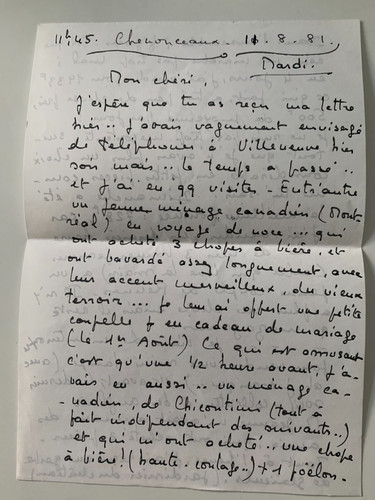 11h,45. Chenonceaux. 11.8.81.
Mardi.
Mon chéri,
J'espère que tu as reçu ma lettre
hier.. J'avais vaguement envisagé
de téléphoner à Villeneuve hier
soir mais.. le temps a passé..
et j'ai eu 99 visites - Entr'autre
un jeune ménage canadien (Mont-
réal) en voyage de noce... qui
ont acheté 3 chopes à bière, et
ont bavardé assez longuement, avec
leur accent merveilleux, du vieux
terroir... je leur ai offert une petite
coupelle en cadeau de mariage
(le 1er Août) Ce qui est amusant
c'est qu'une 1/2 heure avant, j'a-
vais eu aussi.. un ménage ca-
nadien, de Chicoutimi (tout à
fait indépendant des suivants..)
et qui m'ont acheté.. une chope
à bière! (haute. coulage..) + 1 poêlon.